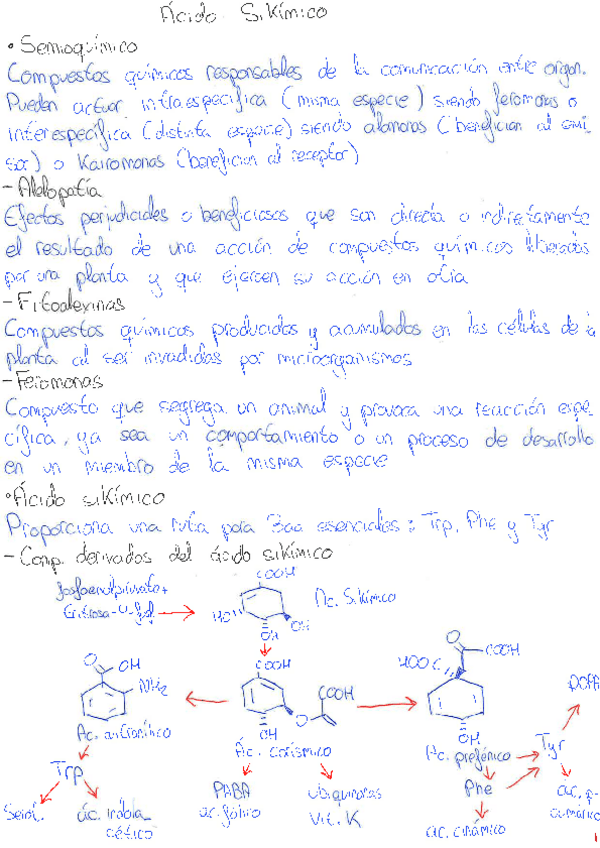 Ácido Sikímico
• Semioquímico
Compuestos químicos responsables de la comunicación entre organ.
Pueden actuar intraespecífica (misma especie) siendo feromonas o
interespecífica (distinta especie) siendo alomonas (benefician al emi-
sor) o Kairomonas (benefician al receptor)
- Alelopatía
Efectos perjudiciales o beneficiosos que son directa o indirectamente
el resultado de una acción de compuestos químicos liberados
por una planta y que ejercen su acción en otra
- Fitoalexinas
Compuestos químicos producidos y acumulados en las células de la
planta al ser invadidas por microorganismos
- Feromonas
Compuesto que segrega un animal y provoca una reacción espe-
cífica, ya sea un comportamiento o un proceso de desarrollo
en un miembro de la misma especie
• Ácido sikímico
Proporciona una ruta para 3aa esenciales: Trp, Phe y Tyr
- Comp. derivados del ácido sikímico
fosfoenolpiruvato +
Eritrosa-4-fosf.
COOH
HO
OH
OH
Ác. Sikímico
O
OH
NH2
Ac. antranílico
COOH
O
COOH
OH
Ác. corísmico
O
COOH
HOOC
OH
Ác. prefénico
DOPA
Trp
Tyr
Phe
Serot.
ác. indola-
cético
PABA
ac. fólico
ubiquinonas
Vit. K
ac. cinámico
ac. p-
cumárico